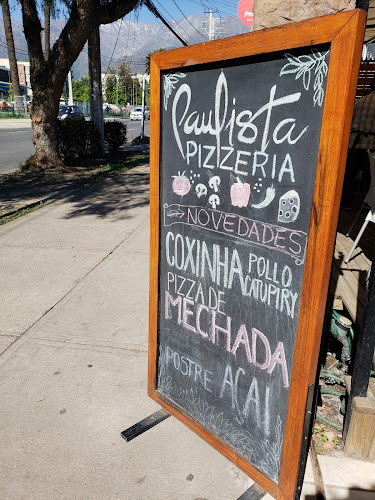 Paulista
PIZZERIA
NOVEDADES
COXINHA POLLO
CATUPIRY
PIZZA DE
MECHADA
POSTRE AÇAI